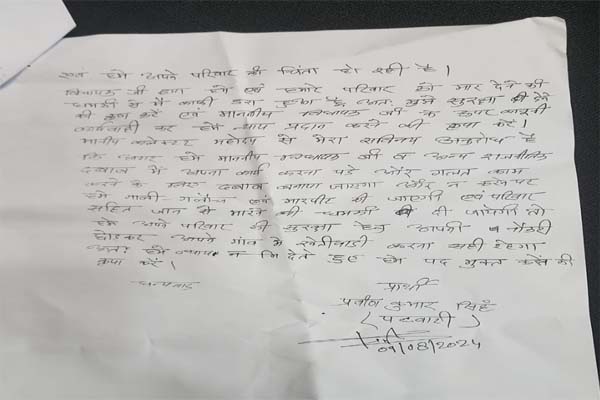 एवं हमे अपने परिवार की चिंता हो रही है।
विधायक जी द्वारा हमे एवं हमारे परिवार को मार देने की
धमकी से मैं काफी डरा हुआ हूँ, अतः मुझे सुरक्षा देने
की कृपा करें एवं माननीय विधायक जी के ऊपर कानूनी
कार्यवाही कर हमे न्याय प्रदान करने की कृपा करें।
माननीय कलेक्टर महोदय से मेरा सविनय अनुरोध है
कि अगर हमे माननीय विधायक जी व अन्य राजनीतिक
दबाव में अपना कार्य करना पड़े और गलत काम
करने के दबाव बनाया जाएगा और न करने पर
हमे गाली गलौच एवं मारपीट की जाएगी एवं परिवार
सहित जान से मारने की धमकी दी जायेगी तो
हमे अपने परिवार की सुरक्षा हेतु आपकी नौकरी
छोड़कर अपने गांव में खेतीबाड़ी करना सही रहेगा
अतः हमे न्याय न देते हुए हमे पद मुक्त करने की
कृपा करें।
धन्यवाद
प्रार्थी
प्रवीण कुमार सिंह
(पटवारी)
09/08/2024